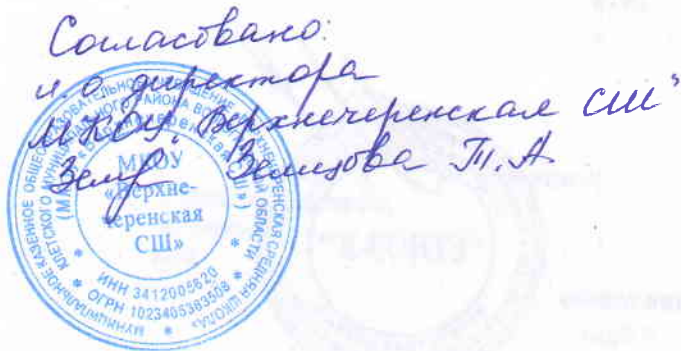 Согласовано:
и.о. директора
МКОУ „Верхнечеренская СШ"
Земцова Т.А.
МУНИЦИПАЛЬНОЕ КАЗЕННОЕ ОБЩЕОБРАЗОВАТЕЛЬНОЕ УЧРЕЖДЕНИЕ ВЕРХНЕЧЕРЕНСКАЯ СРЕДНЯЯ ШКОЛА»
КЛЕТСКОГО МУНИЦИПАЛЬНОГО РАЙОНА ВОЛГОГРАДСКОЙ ОБЛАСТИ
МКОУ
«Верхне-
черенская
СШ»
ИНН 3412005620
ОГРН 1023405383508